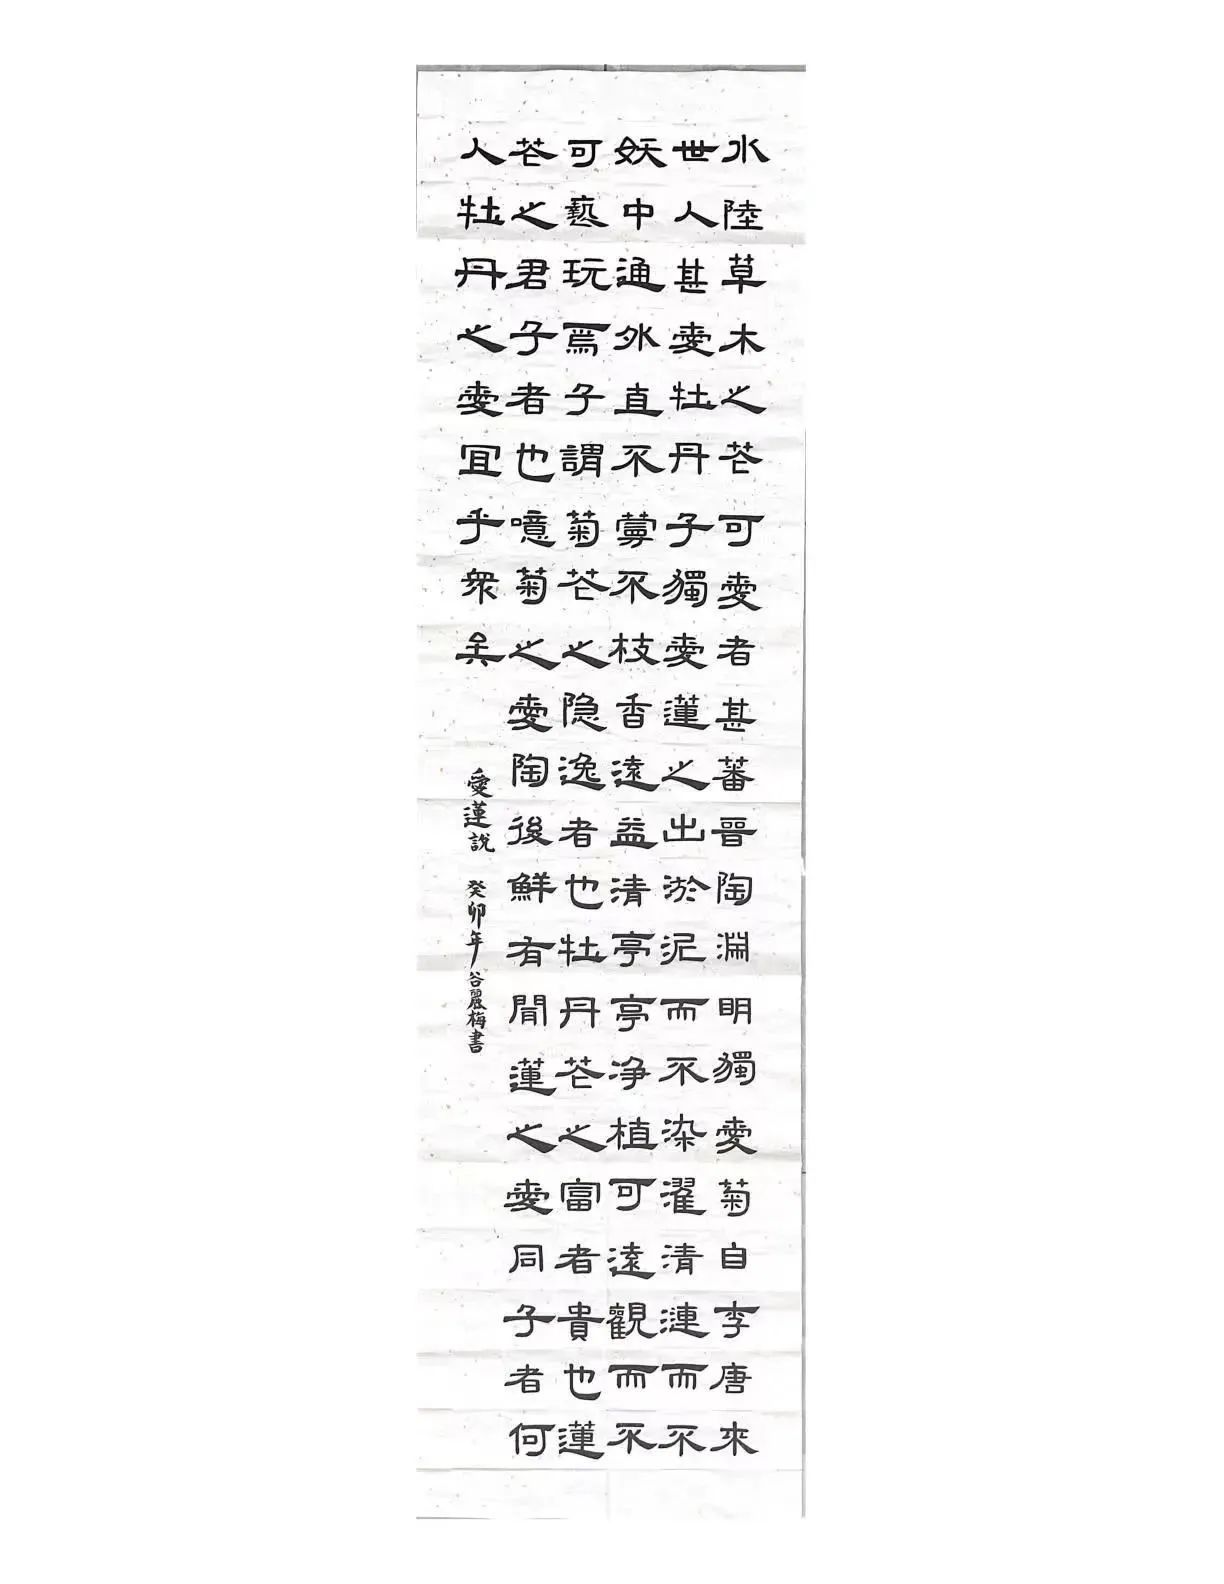 水陸草木之花可愛者甚蕃晉陶淵明獨愛菊自李唐來
世人甚愛牡丹子獨愛蓮之出淤泥而不染濯清漣而不
妖中通外直不蔓不枝香遠益清亭亭净植可遠觀而不
可藝玩焉子謂菊花之隐逸者也牡丹花之富者貴也蓮
花之君子者也噫菊之愛陶後鮮有聞蓮之愛同子者何
人牡丹之愛宜乎衆矣
愛蓮說 癸卯年谷麗梅書